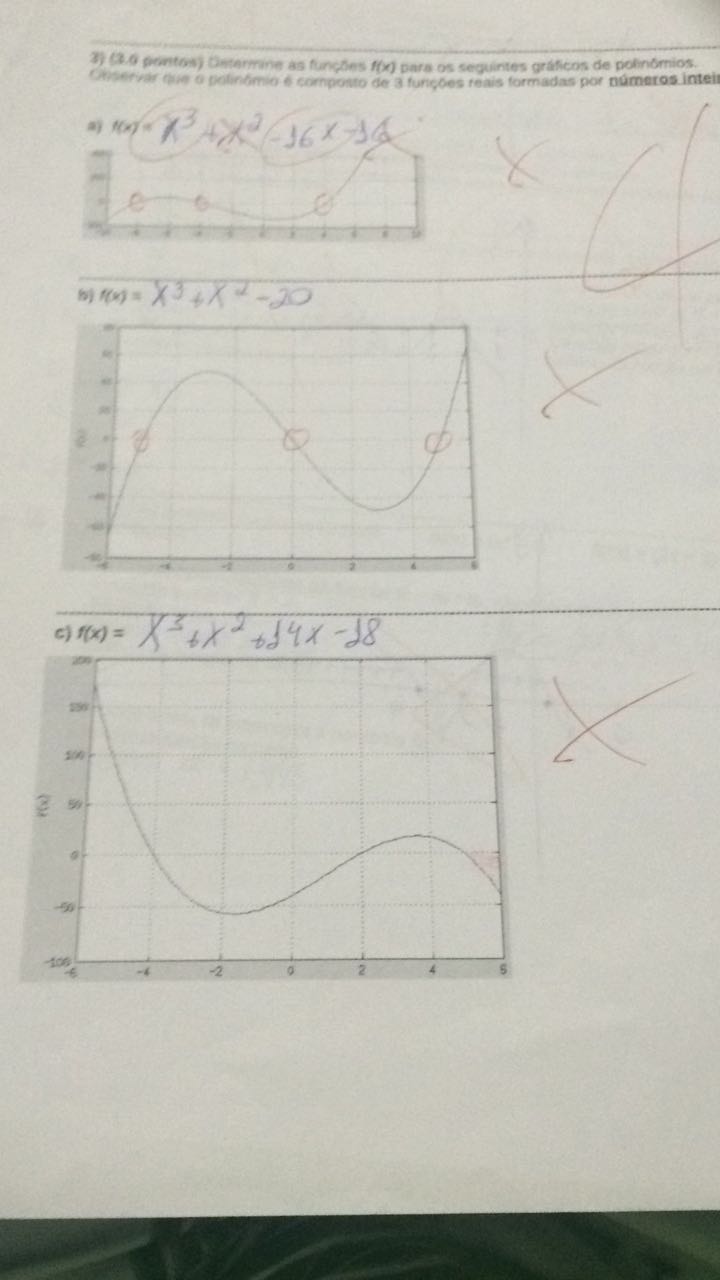 3) (3.0 pontos) Determine as funções f(x) para os seguintes gráficos de polinômios.
Observar que o polinômio é composto de 3 funções reais formadas por números intei
a) f(x) = x³ + x² - 16x - 16
b) f(x) = x³ + x² - 20
f(x)
-6 -4 -2 0 2 4 6
c) f(x) = x³ + x² + 14x - 18
200
150
100
50
0
-50
-100
f(x)
-6 -4 -2 0 2 4 6